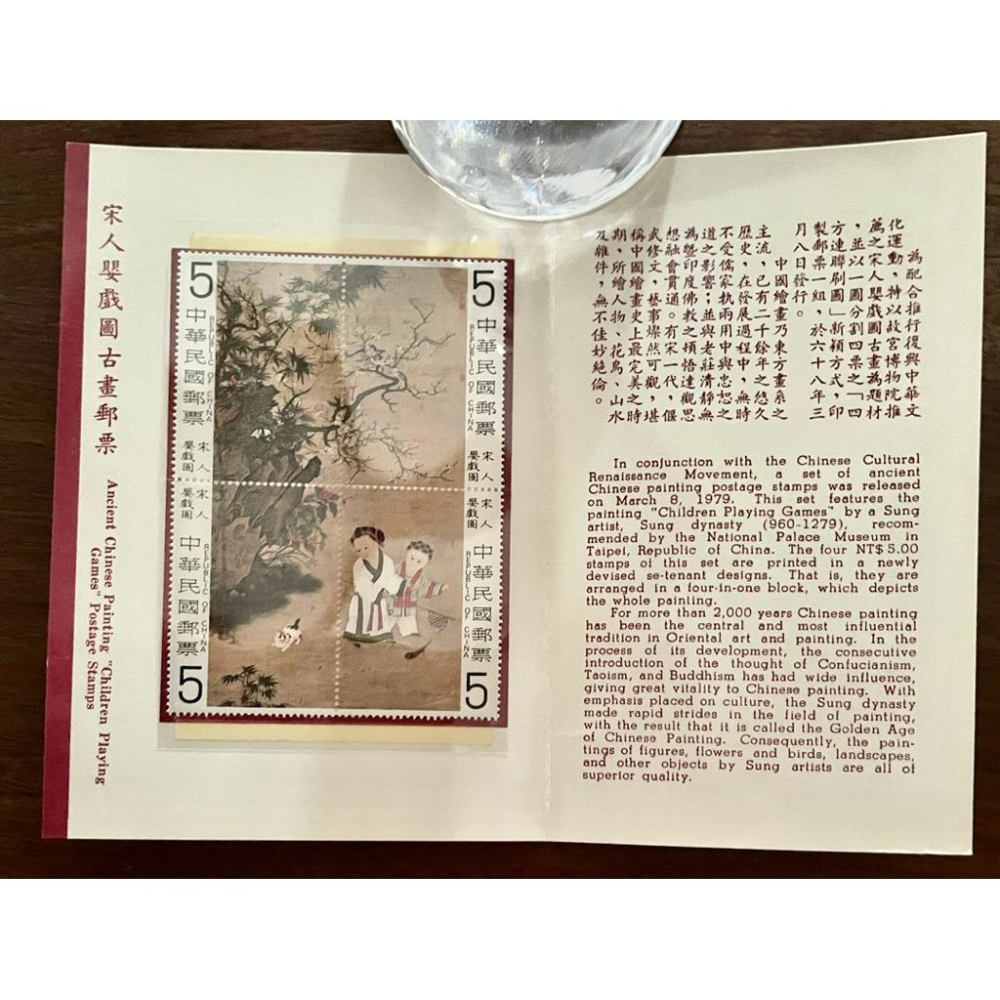 宋人嬰戲圖古畫郵票 Ancient Chinese Painting "Children Playing
Games" Postage Stamps
5
中華民國郵票
REPUBLIC OF CHINA
宋人
嬰戲圖
5
中華民國郵票
REPUBLIC OF CHINA
宋人
嬰戲圖
宋人
嬰戲圖
中華民國郵票
REPUBLIC OF CHINA
5
宋人
嬰戲圖
中華民國郵票
REPUBLIC OF CHINA
5
為配合推行復興中華文
化運動，特以故宮博物院推
薦之宋人嬰戲圖古畫為題材
，並以一圖分割四票之「四
方連聯刷圖」新穎方式，印
製郵票一組，於六十八年三
月八日發行。
中國繪畫乃東方畫系之
主流，已有二千餘年之悠久
歷史，在發展過程中，無時
不受儒家執兩用中與忠恕之
道之影響；並與老莊清靜無
為暨印度佛教之頓悟達觀思
想融會貫通。有宋一代，偃
武修文，藝事燦然可觀，堪
稱中國繪畫史上最完美之時
期，所繪人物、花鳥、山水
及雜件，無不佳妙絕倫。
In conjunction with the Chinese Cultural
Renaissance Movement, a set of ancient
Chinese painting postage stamps was released
on March 8, 1979. This set features the
painting "Children Playing Games" by a Sung
artist, Sung dynasty (960-1279), recom-
mended by the National Palace Museum in
Taipei, Republic of China. The four NT$5.00
stamps of this set are printed in a newly
devised se-tenant designs. That is, they are
arranged in a four-in-one block, which depicts
the whole painting.
For more than 2,000 years Chinese painting
has been the central and most influential
tradition in Oriental art and painting. In the
process of its development, the consecutive
introduction of the thought of Confucianism,
Taoism, and Buddhism has had wide influence,
giving great vitality to Chinese painting. With
emphasis placed on culture, the Sung dynasty
made rapid strides in the field of painting,
with the result that it is called the Golden Age
of Chinese Painting. Consequently, the pain-
tings of figures, flowers and birds, landscapes,
and other objects by Sung artists are all of
superior quality.